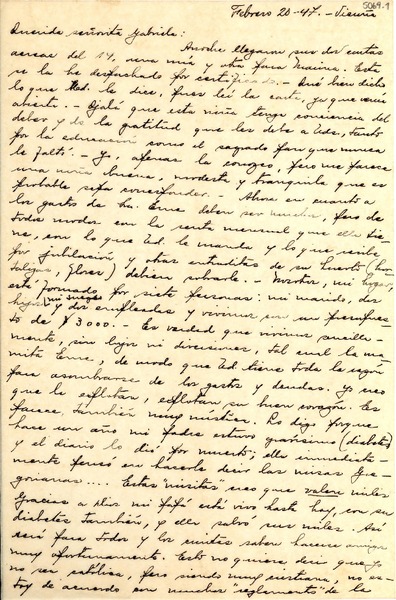 5069-1
Febrero 20-47.- Vicuña
Querida señorita Gabriela:
Anoche llegaron sus dos cartas
aereas del 14, una mía y otra para Marina. Esta
se la he despachado por certificado.- Qué bien dicho
lo que Ud. le dice, pues leí la carta, ya que venía
abierta.- Ojalá que esta niña tenga conciencia del
deber y de la gratitud que les debe a Uds, tanto
por la educación como el sagrado pan que nunca
le faltó.- Yo, apenas la conozco, pero me parece
una niña buena, modesta y tranquila que es
probable sepa corresponder. Ahora en cuanto a
los gastos de la Eme deben ser muchos, pero de
todos modos con la renta mensual que ella tie-
ne, con lo que Ud. le manda y lo que recibe
por jubilación y otras entraditas de su huerto (hor-
talizas, flores) debían sobrarle.- Nosotros, mi hogar,
está formado por siete personas: mi marido, dos
hijos, mi suegra y dos empleadas y vivimos con un presupues-
to de $3000.- Es verdad que vivimos sencilla-
mente, sin lujos ni diversiones, tal cual la ma-
mita Eme, de modo que Ud. tiene toda la razón
para asombrarse de los gastos y deudas. Yo creo
que la explotan, explotan su buen corazón. Es
parece también muy mística. Lo digo porque
hace un año mi padre estuvo gravísimo (diabetes)
y el diario lo dió por muerto; ella inmediata-
mente pensó en hacerle decir las misas Gre-
gorianas.... Estas "misitas" creo que valen miles
Gracias a Dios mi papá está vivo hasta hoy, con su
diabetes también, y ella salvó sus miles. Así
será para todos y los curitas saben hacerse amigos
muy oportunamente. Esto no quiere decir que yo
no sea católica, pero siendo muy cristiana, no es-
toy de acuerdo con muchos reglamentos de la